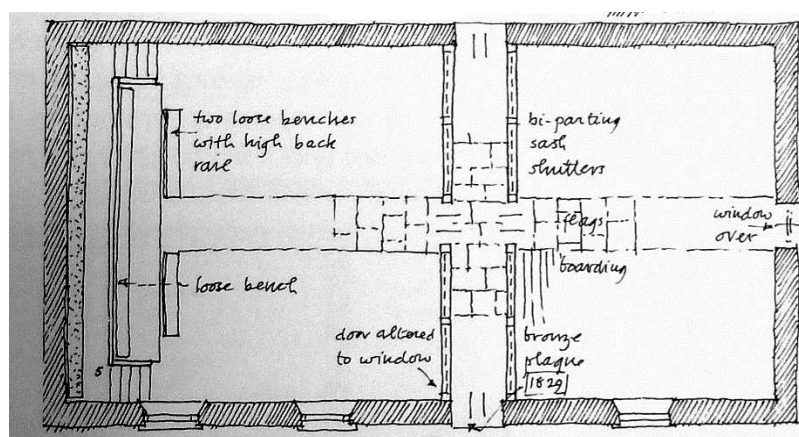 two loose benches
with high back
rail
bi-parting
sash
shutters
flags
window
over
boarding
loose bench
door altered
to window
bronze
plaque
1829
5